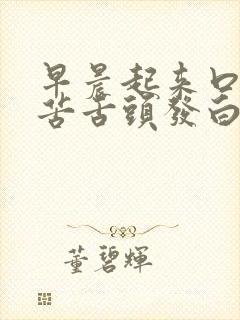 早晨起来口
苦舌頭發白
董碧輝